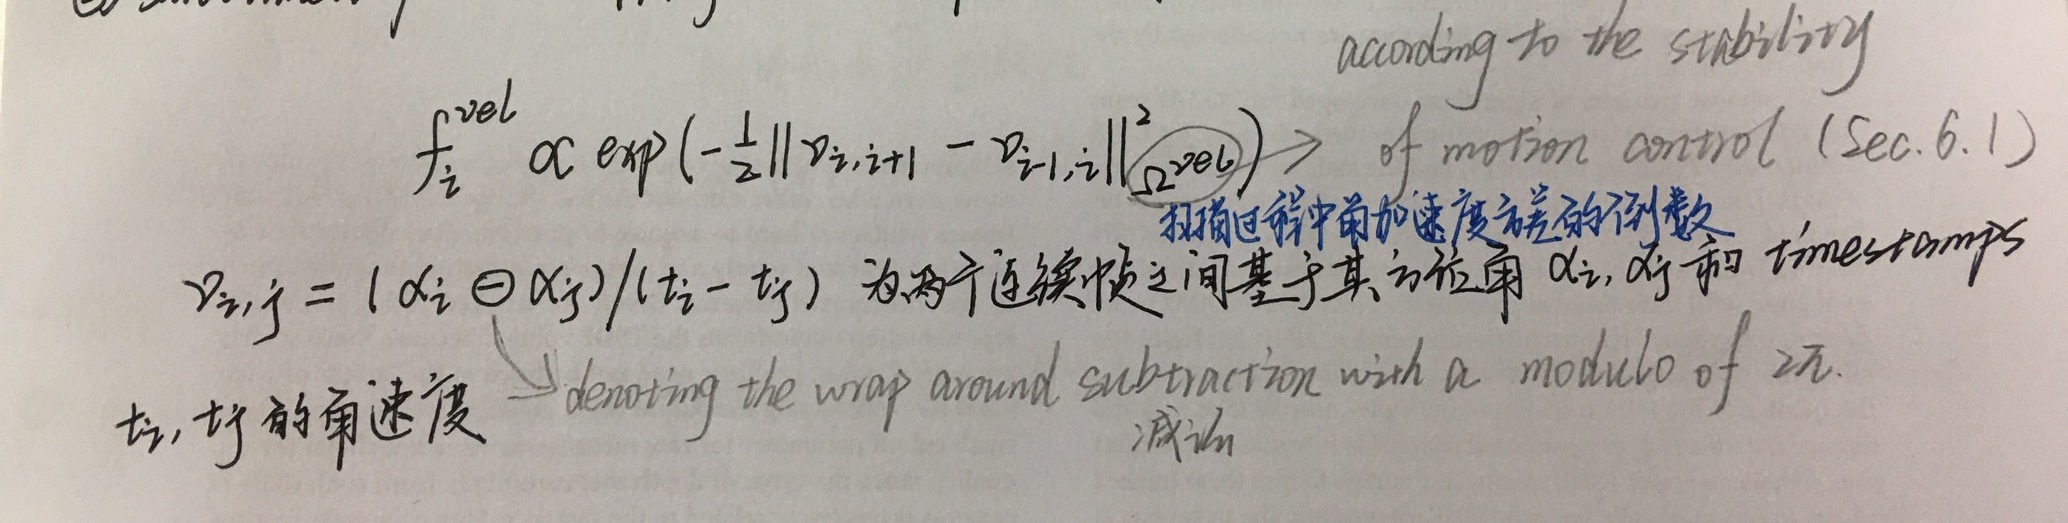 according to the stability
f_i^{vel} ∝ exp(-1/2 ||v_{i,i+1} - v_{i-1,i}||^2_{Ω^{vel}}) → of motion control (Sec. 6.1)
扫描过程中角加速度方差的倒数
v_{i,j} = (α_i ⊖ α_j)/(t_i - t_j) 为两个连续帧之间基于其方位角 α_i, α_j 和 timestamps
→ denoting the wrap around subtraction with a modulo of 2π.
t_i, t_j 的角速度
减法